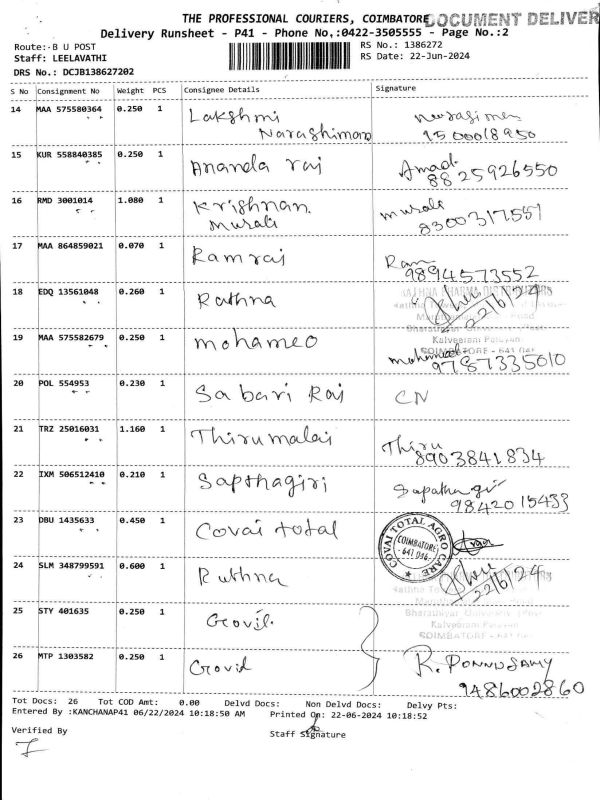 THE PROFESSIONAL COURIERS, COIMBATORE DOCUMENT DELIVER
Delivery Runsheet - P41 - Phone No,:0422-3505555 - Page No.:2
Route:-B U POST
RS No.: 1386272
Staff: LEELAVATHI
RS Date: 22-Jun-2024
DRS No.: DCJB138627202
S No Consignment No Weight PCS Consignee Details Signature
14 MAA 575580364 0.250 1 Lakshmi
Narashiman 9500018950
15 KUR 558840385 0.250 1 Ananda raj Amad
8825926550
16 RMD 3001014 1.080 1 Krishnan murali
Murali 8300317551
17 MAA 864859021 0.070 1 Ramraj Ram
9894573552
18 EDQ 13561048 0.260 1 Rathna 22/6/24
Kalveerani Palayam
COIMBATORE - 641 046
19 MAA 575582679 0.250 1 mohameo mohamed
9787335010
20 POL 554953 0.230 1 Sabari Raj CN
21 TRZ 25016031 1.160 1 Thirumalai Thiru
8903841834
22 IXM 506512410 0.210 1 Sapthagiri Sapathagir
9842015433
23 DBU 1435633 0.450 1 Covai total COVAI TOTAL AGRO CARE
COIMBATORE
- 641 046 -
24 SLM 348799591 0.600 1 Ruthna 22/6/24
Kalveerani Palayam
COIMBATORE - 641
25 STY 401635 0.250 1 Govil
26 MTP 1303582 0.250 1 Govid R. PONNUSAMY
9486002860
Tot Docs: 26 Tot COD Amt: 0.00 Delvd Docs: Non Delvd Docs: Delvy Pts:
Entered By :KANCHANAP41 06/22/2024 10:18:50 AM Printed On: 22-06-2024 10:18:52
Verified By
Staff Signature